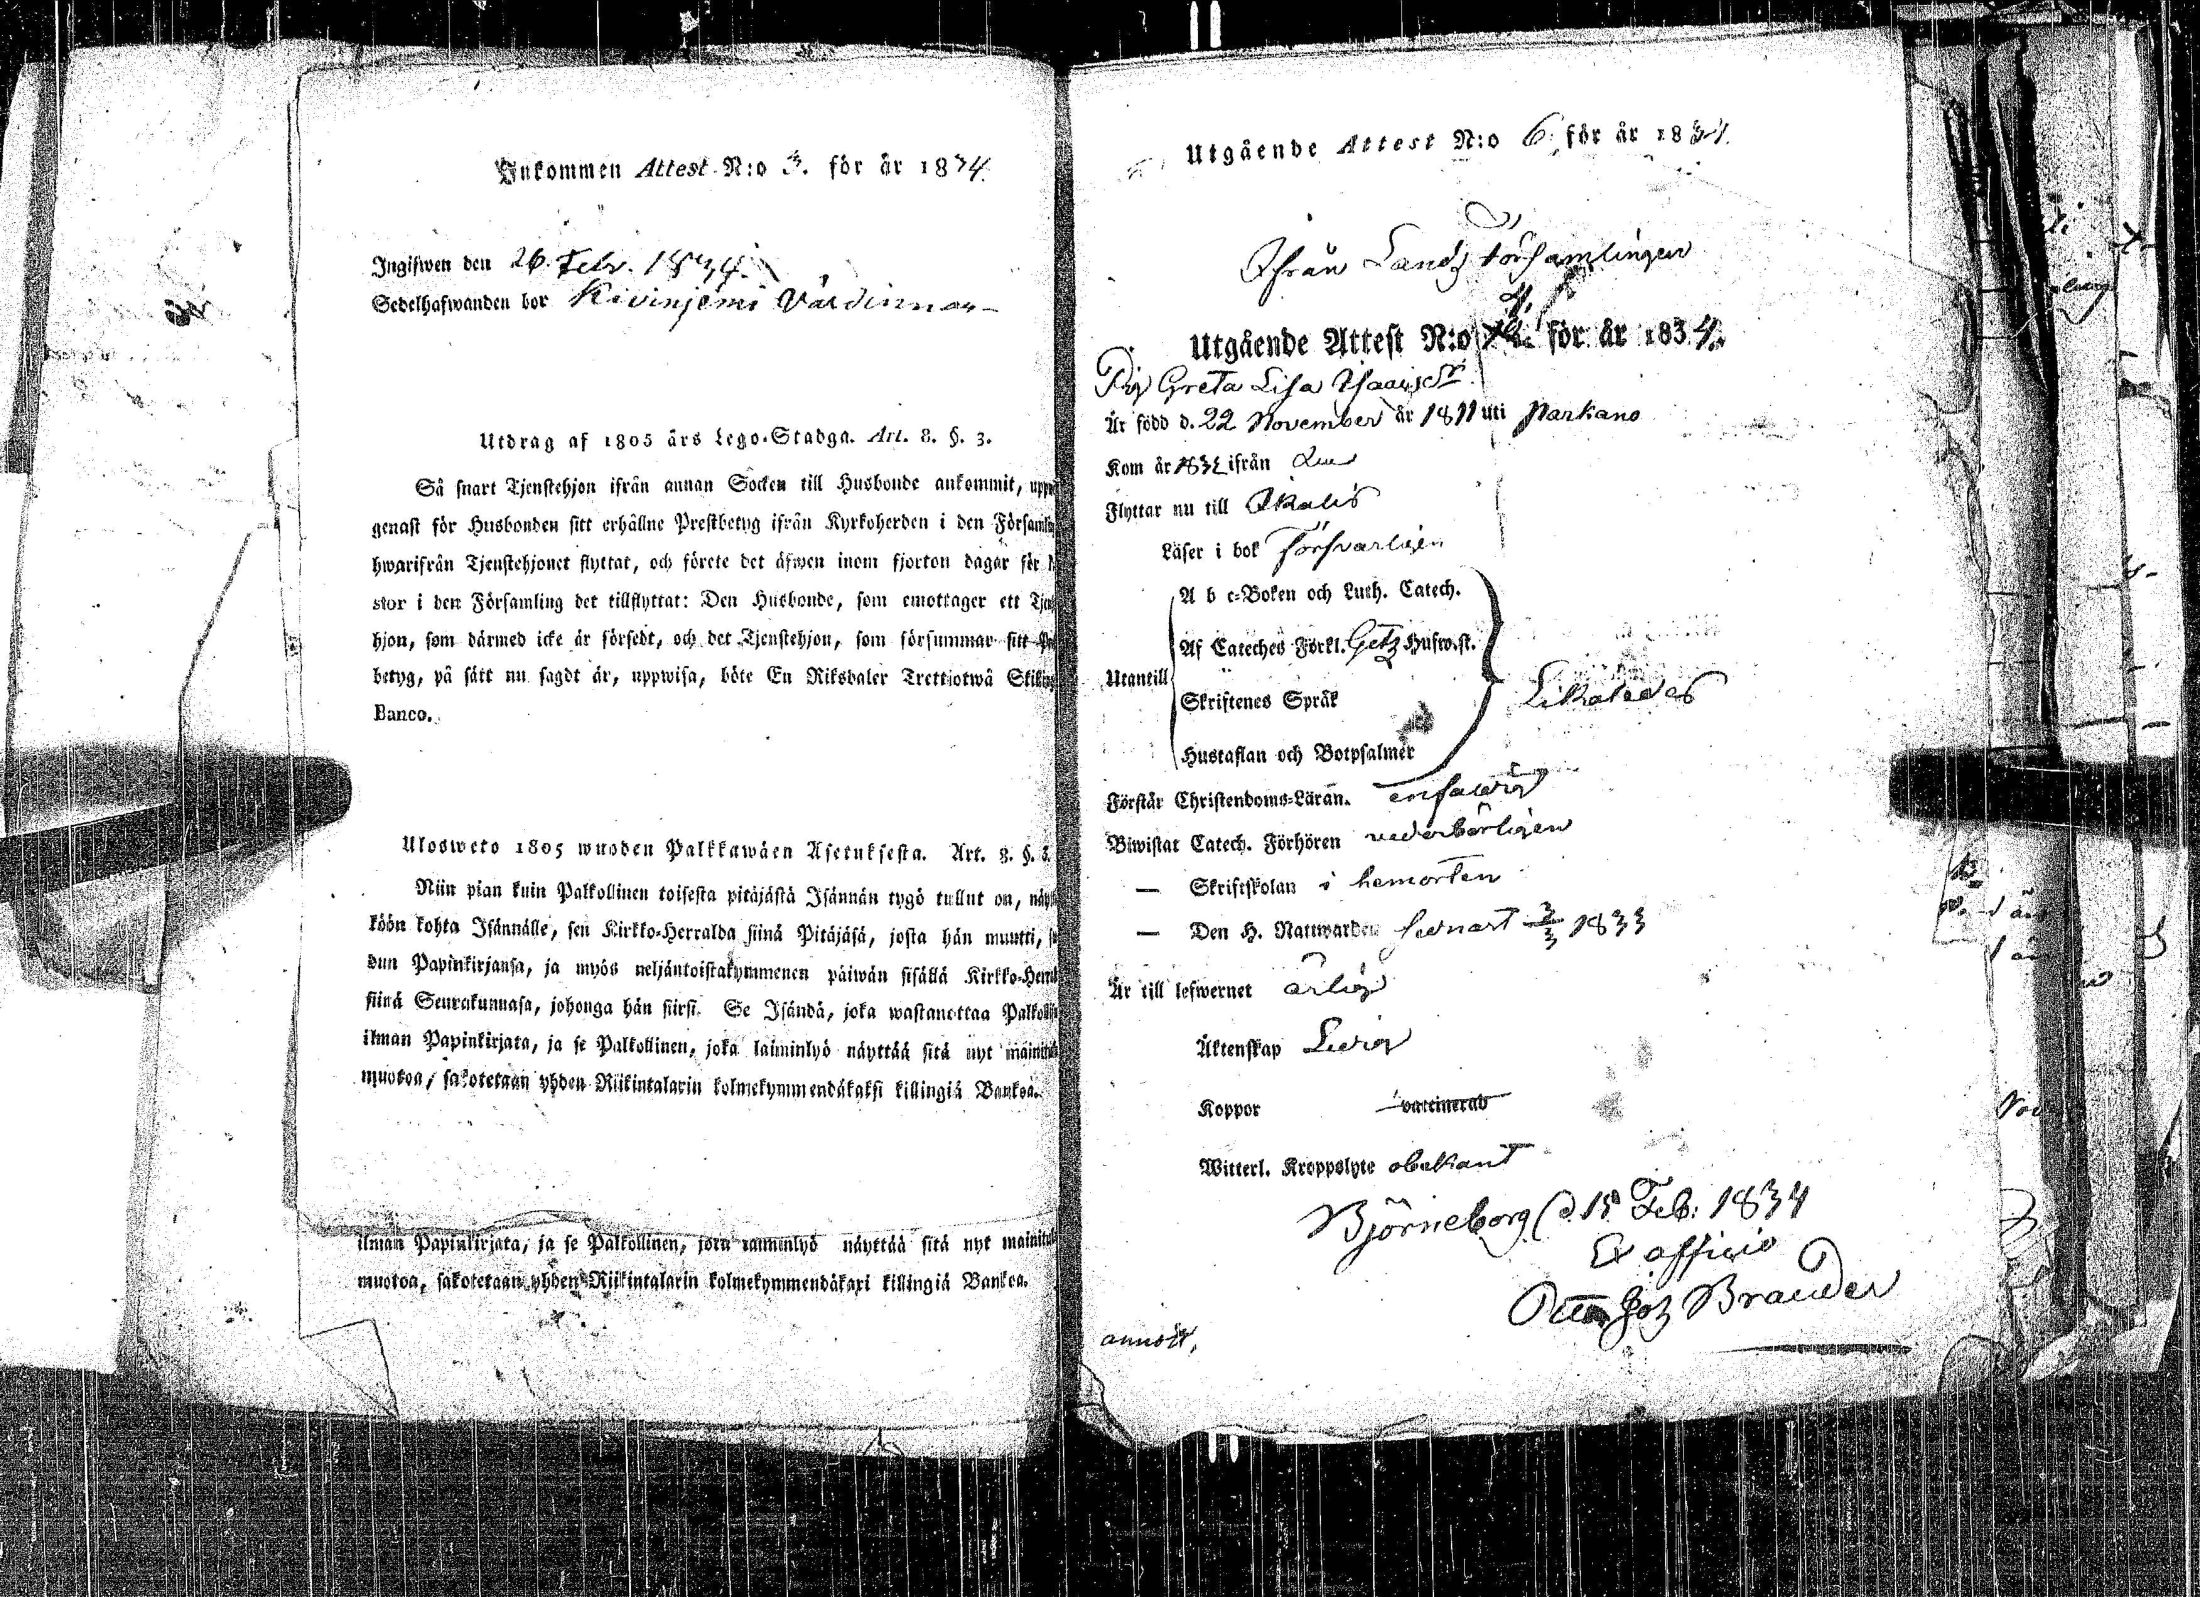 Inkommen Attest N:o 3. för år 1834.
Ingifwen den 26 Febr. 1834.
Sedelhafwanden bor Kivinjemi Värdinnan
Utdrag af 1805 års Lego-Stadga. Art. 8. §. 3.
Så snart Tjenstehjon ifrån annan Socken till Husbonde ankommit,
genast för Husbonden sitt erhållne Prestbetyg ifrån Kyrkoherden i den
hwarifrån Tjenstehjonet flyttat, och förete det äfwen inom fjorton dagar för
stor i den Församling det tillflyttat: Den Husbonde, som emottager ett
hjon, som därmed icke är försedt, och det Tjenstehjon, som försummar sitt
betyg, på sätt nu sagdt är, uppwisa, böte En Riksdaler Trettiotwå
Banco.
Ulosweto 1805 wuoden Palkkawäen Asetuksesta. Art. 8. §. 3.
Niin pian kuin Palkollinen toisesta pitäjästä Isännän tygö tullut on,
köön kohta Isännälle, sen Kirkko-Herralda siinä Pitäjäsä, josta hän muutti,
dun Papinkirjansa, ja myös neljäntoistakymmenen päiwän sisällä
siinä Seurakunnasa, johonga hän siirsi. Se Isändä, joka wastanottaa
ilman Papinkirjata, ja se Palkollinen, joka laiminlyö näyttää sitä nyt
muotoa, sakotetaan yhden Riikintalarin kolmekymmendäkaksi killingiä Bankoa.
ilman Papinkirjata, ja se Palkollinen, joka laiminlyö näyttää sitä nyt
muotoa, sakotetaan yhden Riikintalarin kolmekymmendäkaxi killingiä Bankoa.
Utgående Attest N:o 6. för år 1834.
Ifrån Lands Församlingen
Utgående Attest N:o för år 1834.
Pig Greta Lisa Isaacsdr
Är född d. 22 November år 1811 uti Parkano
Kom år ifrån
Flyttar nu till Ikalis
Läser i bok försvarligen
A b c-Boken och Luth. Catech.
Af Cateches Förkl. Getz Husw.st.
Utantill
Skriftenes Språk
Likaledes
Hustaflan och Botpsalmer
Förstår Christendoms-Läran. enfaldigt
Biwistat Catech. Förhören vederbörligen
— Skriftskolan i hemorten
— Den H. Nattwarden senast 3/3 1833
Är till lefwernet ärlig
Äktenskap Ledig
Koppor vaccinerad
Witterl. Kroppslyte obekant
Björneborg d. 15 Feb: 1834
Ex officio
Brander